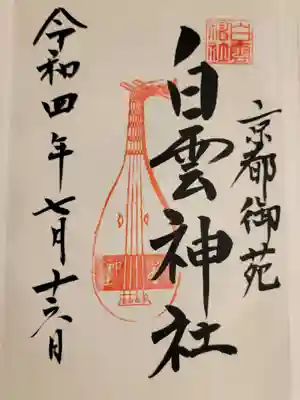 京都御苑
白雲神社
令和四年七月十六日
白雲神社